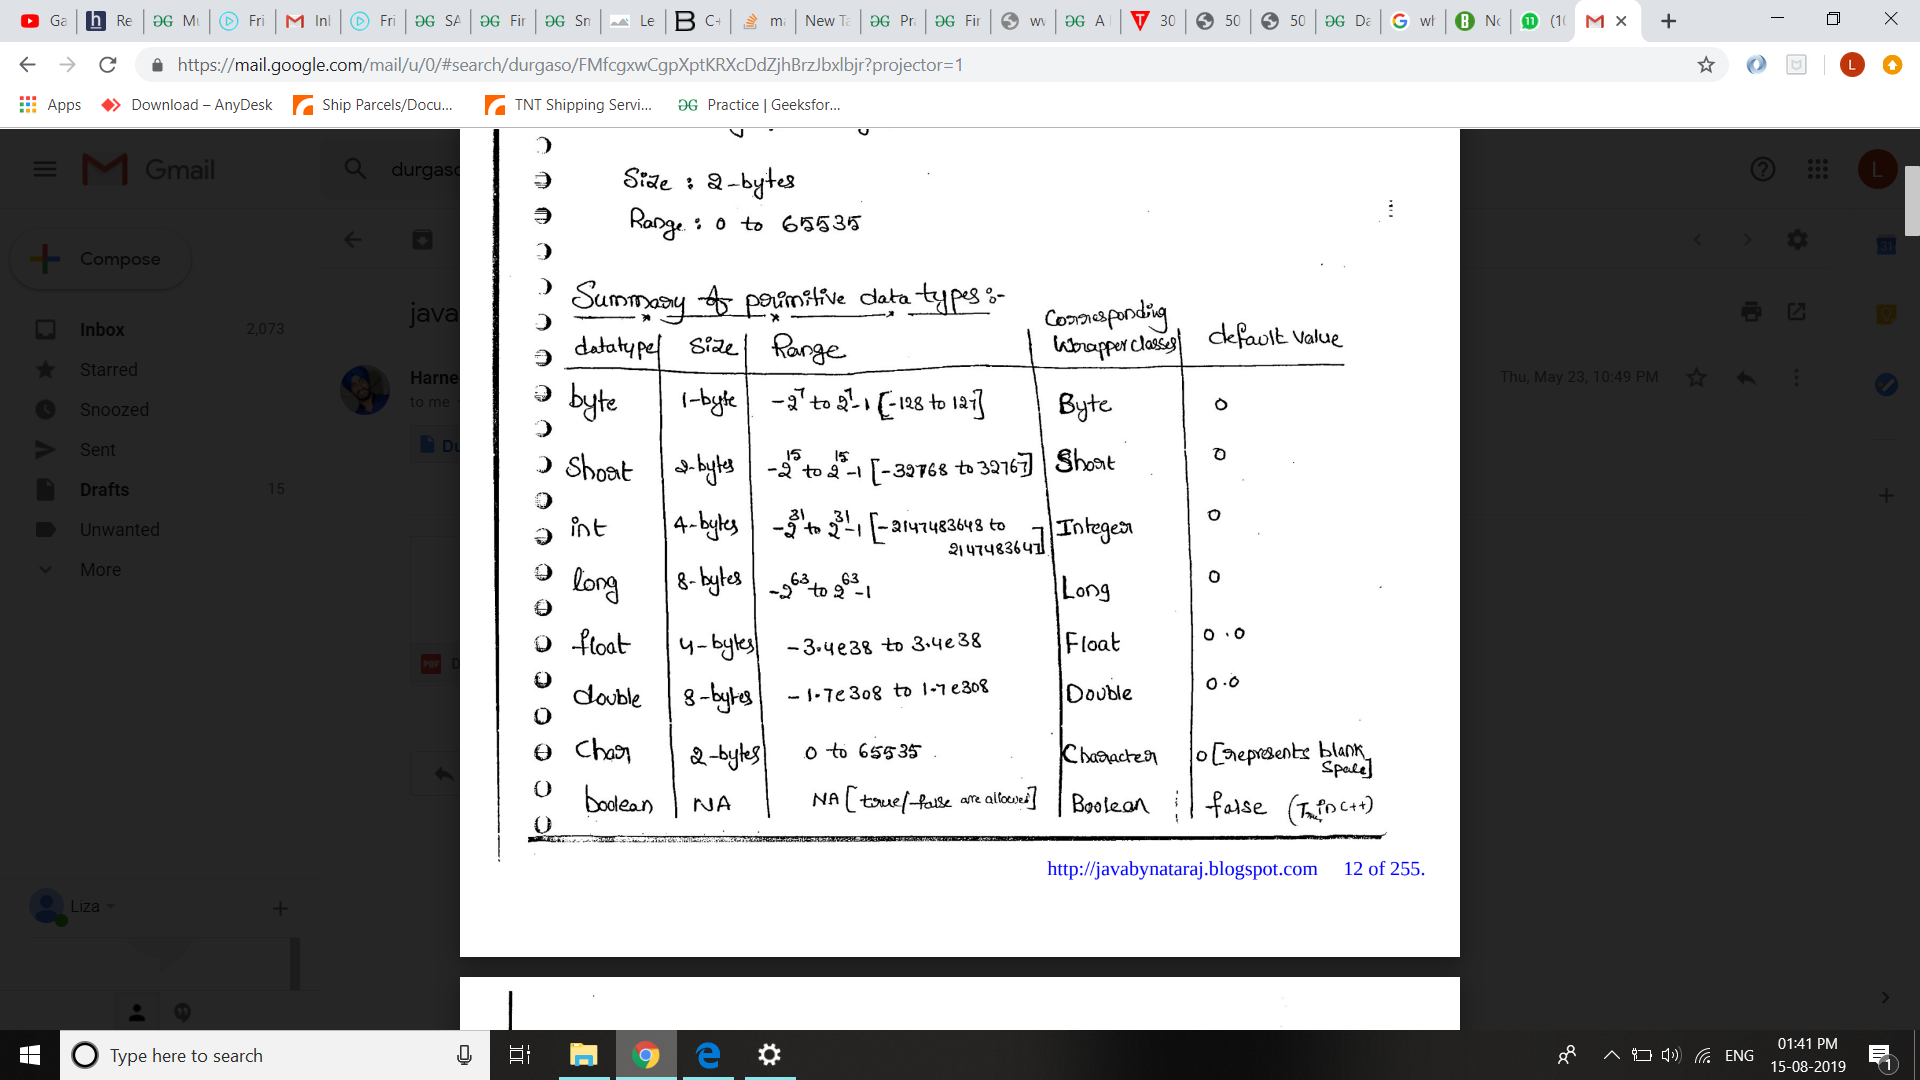 Ga
Re
Mu
Fri
Inl
Fri
SA
Fir
Sm
Le
C+
ma
New Ta
Pra
Fir
wv
A l
30
50
50
Da
wh
No
(10
https://mail.google.com/mail/u/0/#search/durgaso/FMfcgxwCgpXptKRXcDdZjhBrzJbxlbjr?projector=1
L
Apps
Download – AnyDesk
Ship Parcels/Docu...
TNT Shipping Servi...
Practice | Geeksfor...
Gmail
durgaso
L
Compose
java
Inbox 2,073
Starred
Snoozed
Sent
Drafts 15
Unwanted
More
Harne
to me
Du
Thu, May 23, 10:49 PM
31
PDF
Liza
Size : 2-bytes
Range : 0 to 65535
Summary of primitive data types :-
datatype Size Range Corresponding Wrapper classes default value
byte 1-byte -2^7 to 2^7-1 [-128 to 127] Byte 0
Short 2-bytes -2^15 to 2^15-1 [-32768 to 32767] Short 0
int 4-bytes -2^31 to 2^31-1 [-2147483648 to 2147483647] Integer 0
long 8-bytes -2^63 to 2^63-1 Long 0
float 4-bytes -3.4e38 to 3.4e38 Float 0.0
double 8-bytes -1.7e308 to 1.7e308 Double 0.0
Char 2-bytes 0 to 65535 Character 0 [represents blank space]
boolean NA NA [true/false are allowed] Boolean false (True in C++)
http://javabynataraj.blogspot.com 12 of 255.
Type here to search
ENG
01:41 PM
15-08-2019
1